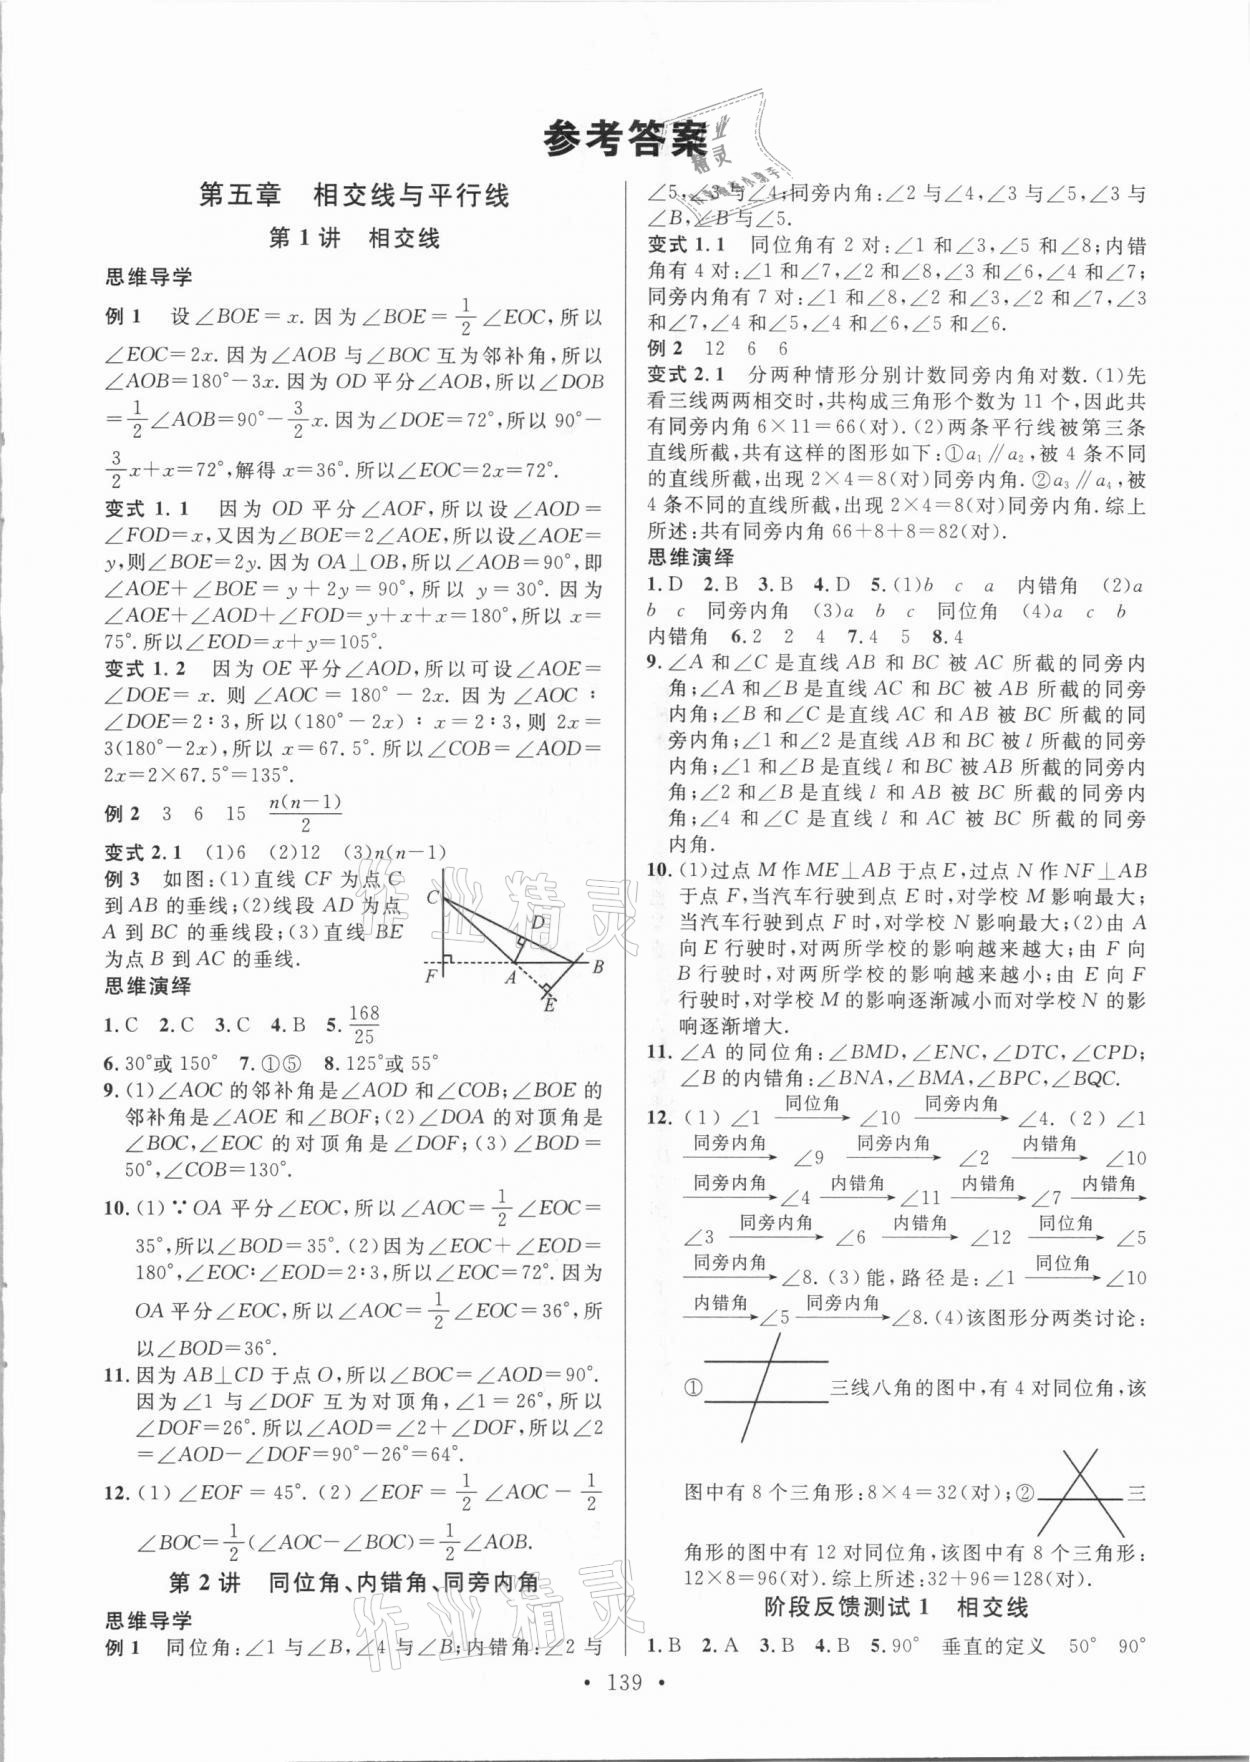 参考答案
第五章 相交线与平行线
第1讲 相交线
思维导学
例1 设∠BOE=x.因为∠BOE=1/2∠EOC,所以
∠EOC=2x.因为∠AOB与∠BOC互为邻补角,所以
∠AOB=180°-3x.因为OD平分∠AOB,所以∠DOB
=1/2∠AOB=90°-3/2x.因为∠DOE=72°,所以90°-
3/2x+x=72°,解得x=36°.所以∠EOC=2x=72°.
变式1.1 因为OD平分∠AOF,所以设∠AOD=
∠FOD=x,又因为∠BOE=2∠AOE,所以设∠AOE=
y,则∠BOE=2y.因为OA⊥OB,所以∠AOB=90°,即
∠AOE+∠BOE=y+2y=90°,所以y=30°.因为
∠AOE+∠AOD+∠FOD=y+x+x=180°,所以x=
75°.所以∠EOD=x+y=105°.
变式1.2 因为OE平分∠AOD,所以可设∠AOE=
∠DOE=x.则∠AOC=180°-2x.因为∠AOC∶
∠DOE=2∶3,所以(180°-2x)∶x=2∶3,则2x=
3(180°-2x),所以x=67.5°.所以∠COB=∠AOD=
2x=2×67.5°=135°.
例2 3 6 15 n(n-1)/2
变式2.1 (1)6 (2)12 (3)n(n-1)
例3 如图:(1)直线CF为点C
到AB的垂线;(2)线段AD为点
A到BC的垂线段;(3)直线BE
为点B到AC的垂线.
C
D
F
A
B
E
思维演绎
1.C 2.C 3.C 4.B 5.168/25
6.30°或150° 7.①⑤ 8.125°或55°
9.(1)∠AOC的邻补角是∠AOD和∠COB;∠BOE的
邻补角是∠AOE和∠BOF;(2)∠DOA的对顶角是
∠BOC,∠EOC的对顶角是∠DOF;(3)∠BOD=
50°,∠COB=130°.
10.(1)∵OA平分∠EOC,所以∠AOC=1/2∠EOC=
35°,所以∠BOD=35°.(2)因为∠EOC+∠EOD=
180°,∠EOC∶∠EOD=2∶3,所以∠EOC=72°.因为
OA平分∠EOC,所以∠AOC=1/2∠EOC=36°,所
以∠BOD=36°.
11.因为AB⊥CD于点O,所以∠BOC=∠AOD=90°.
因为∠1与∠DOF互为对顶角,∠1=26°,所以
∠DOF=26°.所以∠AOD=∠2+∠DOF,所以∠2
=∠AOD-∠DOF=90°-26°=64°.
12.(1)∠EOF=45°.(2)∠EOF=1/2∠AOC-1/2
∠BOC=1/2(∠AOC-∠BOC)=1/2∠AOB.
第2讲 同位角、内错角、同旁内角
思维导学
例1 同位角:∠1与∠B,∠4与∠B;内错角:∠2与
∠5,∠3与∠4;同旁内角:∠2与∠4,∠3与∠5,∠3与
∠B,∠B与∠5.
变式1.1 同位角有2对:∠1和∠3,∠5和∠8;内错
角有4对:∠1和∠7,∠2和∠8,∠3和∠6,∠4和∠7;
同旁内角有7对:∠1和∠8,∠2和∠3,∠2和∠7,∠3
和∠7,∠4和∠5,∠4和∠6,∠5和∠6.
例2 12 6 6
变式2.1 分两种情形分别计数同旁内角对数.(1)先
看三线两两相交时,共构成三角形个数为11个,因此共
有同旁内角6×11=66(对).(2)两条平行线被第三条
直线所截,共有这样的图形如下:①a₁∥a₂,被4条不同
的直线所截,出现2×4=8(对)同旁内角.②a₃∥a₄,被
4条不同的直线所截,出现2×4=8(对)同旁内角.综上
所述:共有同旁内角66+8+8=82(对).
思维演绎
1.D 2.B 3.B 4.D 5.(1)b c a 内错角 (2)a
b c 同旁内角 (3)a b c 同位角 (4)a c b
内错角 6.2 2 4 7.4 5 8.4
9.∠A和∠C是直线AB和BC被AC所截的同旁内
角;∠A和∠B是直线AC和BC被AB所截的同旁
内角;∠B和∠C是直线AC和AB被BC所截的同
旁内角;∠1和∠2是直线AB和BC被l所截的同旁
内角;∠1和∠B是直线l和BC被AB所截的同旁
内角;∠2和∠B是直线l和AB被BC所截的同旁
内角;∠4和∠C是直线l和AC被BC所截的同旁
内角.
10.(1)过点M作ME⊥AB于点E,过点N作NF⊥AB
于点F,当汽车行驶到点E时,对学校M影响最大;
当汽车行驶到点F时,对学校N影响最大;(2)由A
向E行驶时,对两所学校的影响越来越大;由F向
B行驶时,对两所学校的影响越来越小;由E向F
行驶时,对学校M的影响逐渐减小而对学校N的影
响逐渐增大.
11.∠A的同位角:∠BMD,∠ENC,∠DTC,∠CPD;
∠B的内错角:∠BNA,∠BMA,∠BPC,∠BQC.
12.(1)∠1 同位角→ ∠10 同旁内角→ ∠4.(2)∠1
同旁内角→ ∠9 同旁内角→ ∠2 内错角→ ∠10
同旁内角→ ∠4 内错角→ ∠11 内错角→ ∠7 内错角→
∠3 同旁内角→ ∠6 内错角→ ∠12 同位角→ ∠5
同旁内角→ ∠8.(3)能,路径是:∠1 同位角→ ∠10
内错角→ ∠5 同旁内角→ ∠8.(4)该图形分两类讨论:
① 三线八角的图中,有4对同位角,该
图中有8个三角形:8×4=32(对);② 三
角形的图中有12对同位角,该图中有8个三角形:
12×8=96(对).综上所述:32+96=128(对).
阶段反馈测试1 相交线
1.B 2.A 3.B 4.B 5.90° 垂直的定义 50° 90°
• 139 •
作业精灵
作业精灵
作业精灵